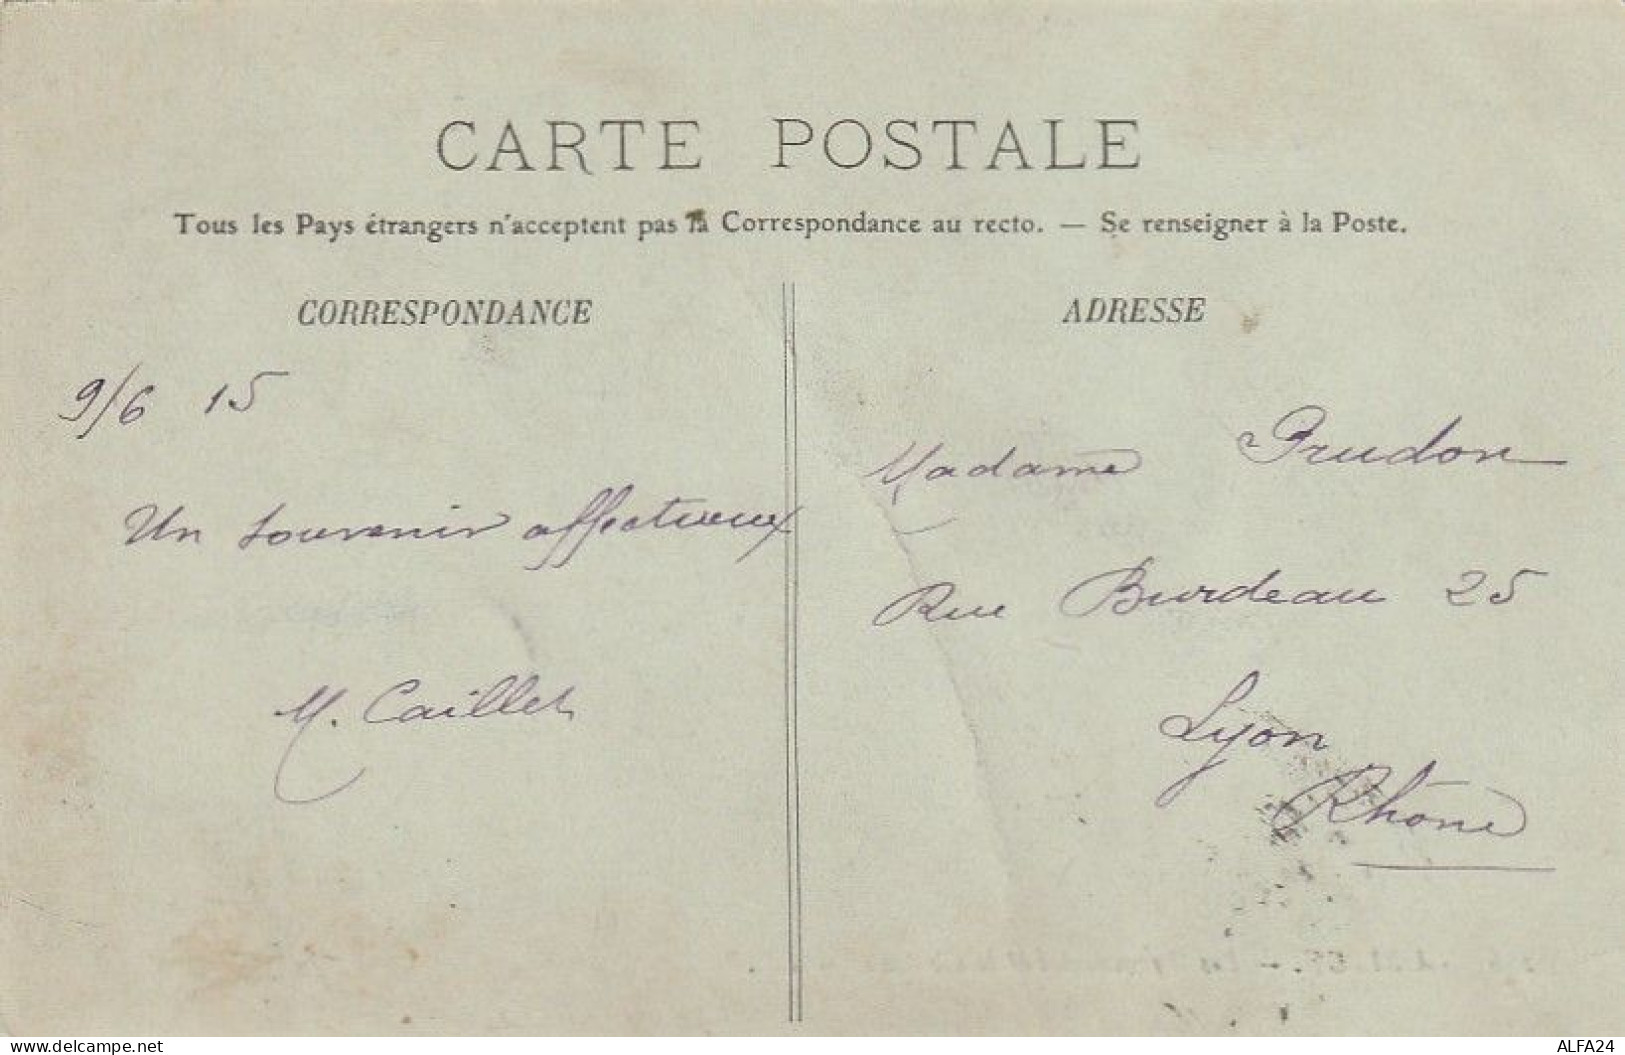 CARTE POSTALE
Tous les Pays étrangers n'acceptent pas la Correspondance au recto. — Se renseigner à la Poste.
CORRESPONDANCE
9/6 15
Un souvenir affectueux
M. Caillet
ADRESSE
Madame Prudon
Rue Burdeau 25
Lyon
Rhône
www.delcampe.net
ALFA24